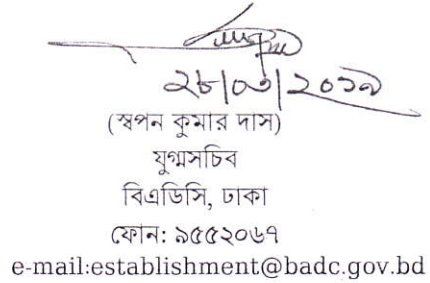 ২৮/০৩/২০১৯
(স্বপন কুমার দাস)
যুগ্মসচিব
বিএডিসি, ঢাকা
ফোন: ৯৫৫২০৬৭
e-mail:establishment@badc.gov.bd